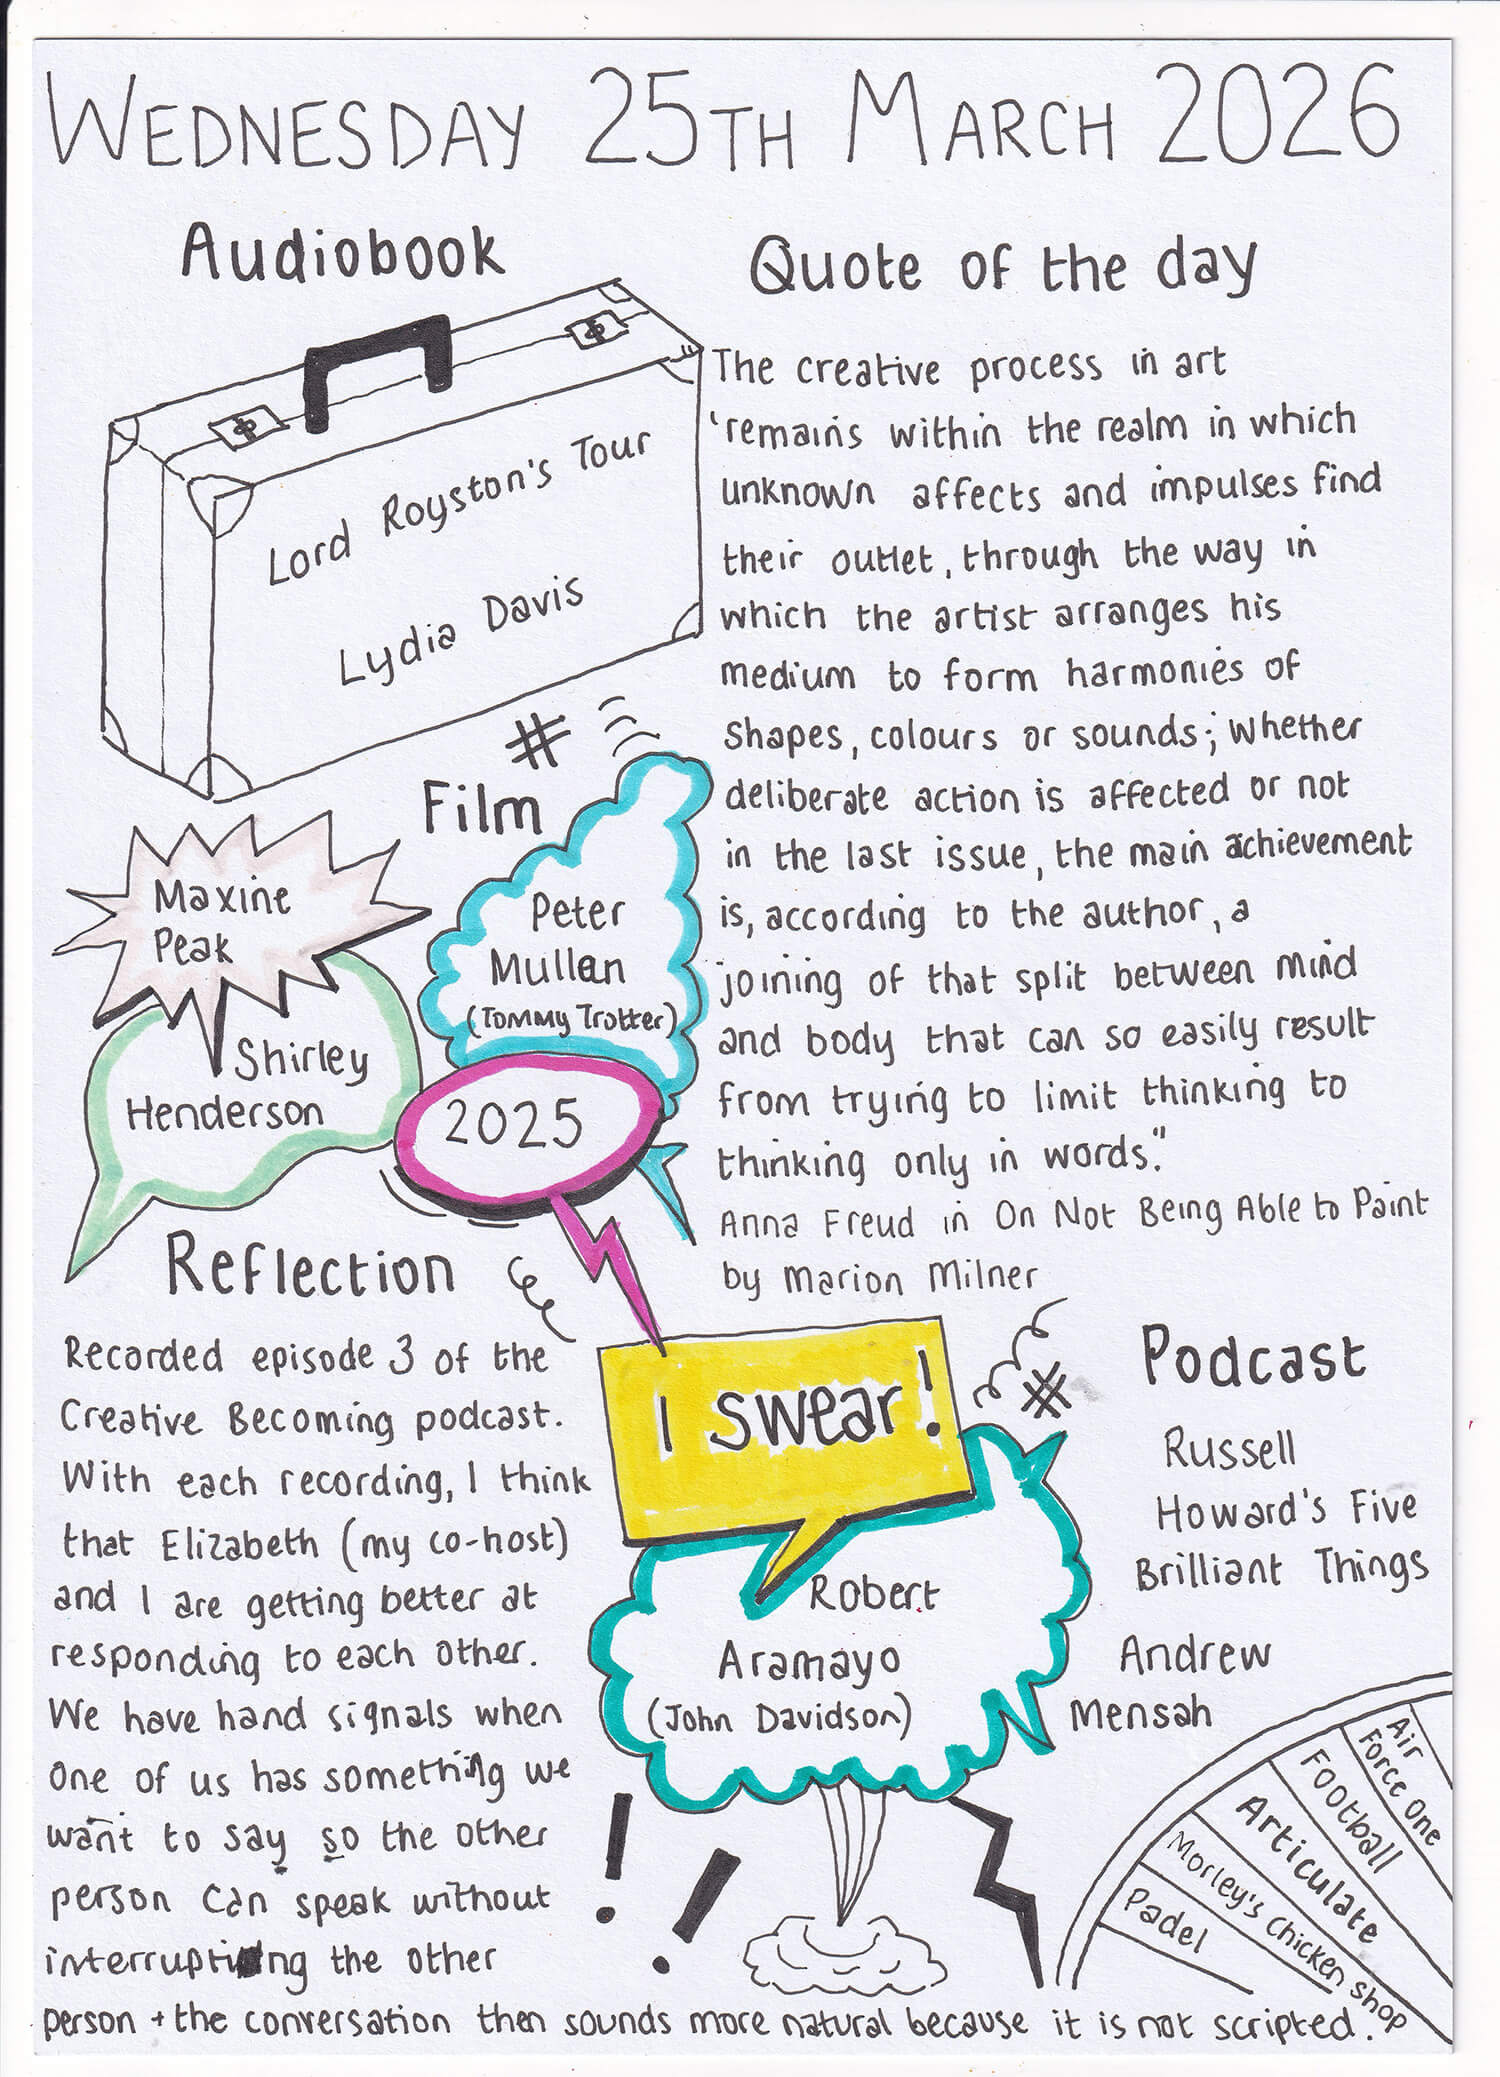 WEDNESDAY 25TH MARCH 2026
Audiobook
Lord Royston's Tour
Lydia Davis
Quote of the day
The creative process in art
'remains within the realm in which
unknown affects and impulses find
their outlet, through the way in
which the artist arranges his
medium to form harmonies of
shapes, colours or sounds; whether
deliberate action is affected or not
in the last issue, the main achievement
is, according to the author, a
joining of that split between mind
and body that can so easily result
from trying to limit thinking to
thinking only in words."
Anna Freud in On Not Being Able to Paint
by Marion Milner
#
Film
Maxine
Peak
Peter
Mullan
(Tommy Trotter)
Shirley
Henderson
2025
I swear!
#
Robert
Aramayo
(John Davidson)
Reflection
Recorded episode 3 of the
Creative Becoming podcast.
With each recording, I think
that Elizabeth (my co-host)
and I are getting better at
responding to each other.
We have hand signals when
one of us has something we
want to say so the other
person can speak without
interrupting the other
person + the conversation then sounds more natural because it is not scripted.
! !
Podcast
Russell
Howard's Five
Brilliant Things
Andrew
Mensah
Air
Force One
Football
Articulate
Morley's Chicken Shop
Padel